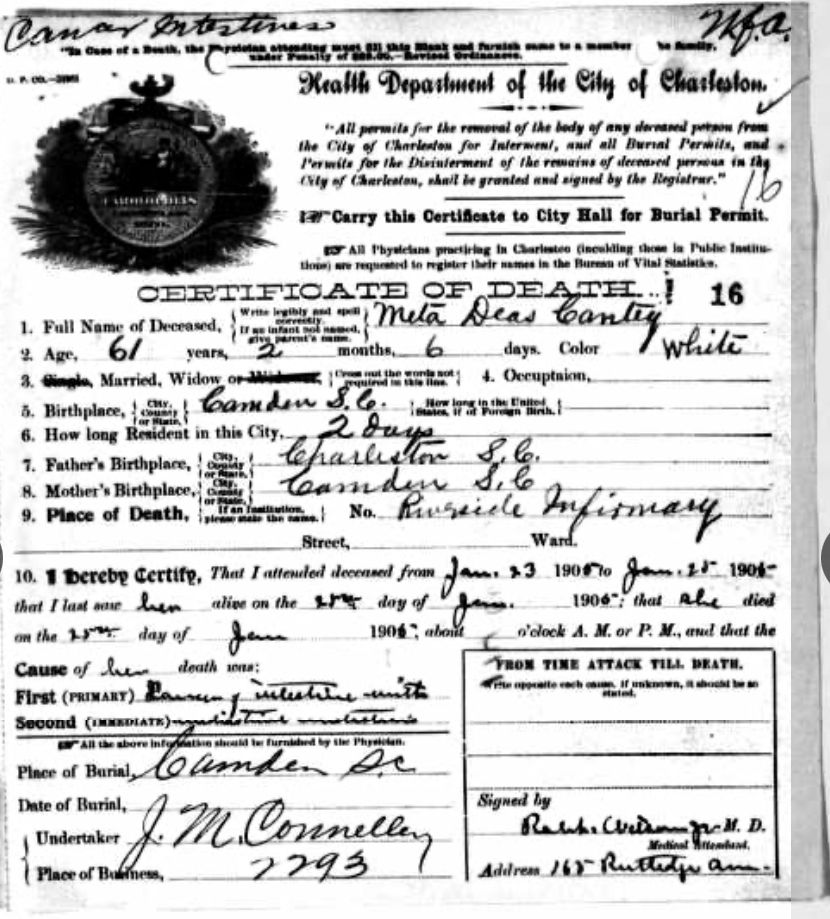 Cancer Intestines
M.f.a.
"In Case of a Death, the Physician attending must fill this Blank and furnish same to a member family,
under Penalty of Revised Ordinances.
Health Department of the City of Charleston.
"All permits for the removal of the body of any deceased person from
the City of Charleston for Interment, and all Burial Permits, and
Permits for the Disinterment of the remains of deceased persons in the
City of Charleston, shall be granted and signed by the Registrar."
16
Carry this Certificate to City Hall for Burial Permit.
All Physicians practicing in Charleston (inculding those in Public Institu-
tions) are requested to register their names in the Bureau of Vital Statistics.
CERTIFICATE OF DEATH. 16
1. Full Name of Deceased, { Write legibly and spell correctly. If an infant not named, give parent's name. } Meta Deas Cantey
2. Age, 61 years, 2 months, 6 days. Color White
3. Single, Married, Widow or { Cross out the words not required in this line. } 4. Occuptnion,
5. Birthplace, { City, County or State, } Camden S.C. { How long in the United States, if of Foreign Birth. }
6. How long Resident in this City, 2 Days
7. Father's Birthplace, { City, County or State, } Charleston S.C.
8. Mother's Birthplace, { City, County or State, } Camden S.C
9. Place of Death, { If an Institution, please state the name. } No. Riverside Infirmary
Street, Ward.
10. I hereby Certify, That I attended deceased from Jan. 23 1905 to Jan. 25 1905
that I last saw her alive on the 25th day of Jan. 1905; that she died
on the 25th day of Jan 1905; about o'clock A. M. or P. M., and that the
Cause of her death was:
First (PRIMARY) Cancer of intestine with
Second (IMMEDIATE) intestinal obstruction
All the above information should be furnished by the Physician.
Place of Burial, Camden S.C
Date of Burial,
Undertaker J. M. Connelley
Place of Business, 2293
FROM TIME ATTACK TILL DEATH.
Write opposite each cause. If unknown, it should be so
stated.
Signed by
M. D.
Medical Attendant.
Address 165 Rutledge Ave.